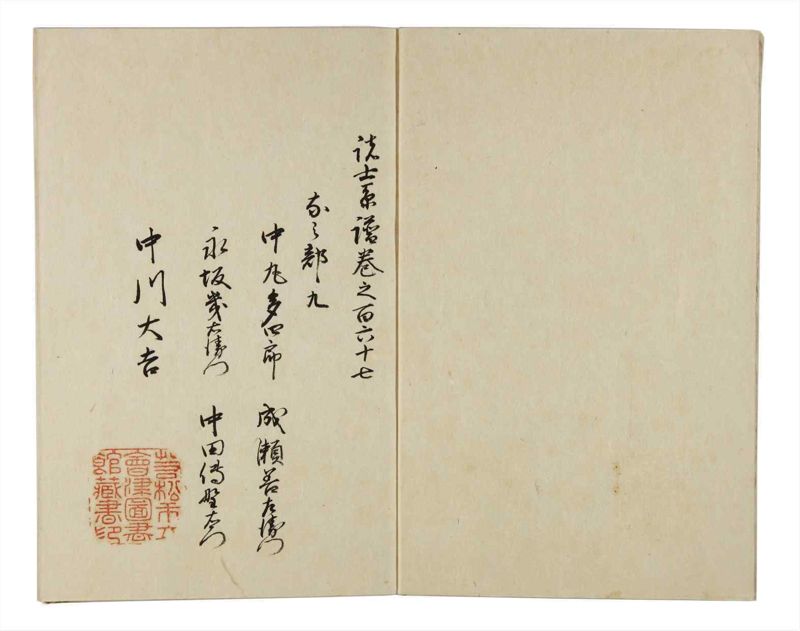 諸士系譜巻之百六十七
なノ部九
中丸多四郎
成瀬善左衛門
永坂幾右衛門
中田傳野右衛門
中川大吉
若松市立
會津圖書
館藏書印